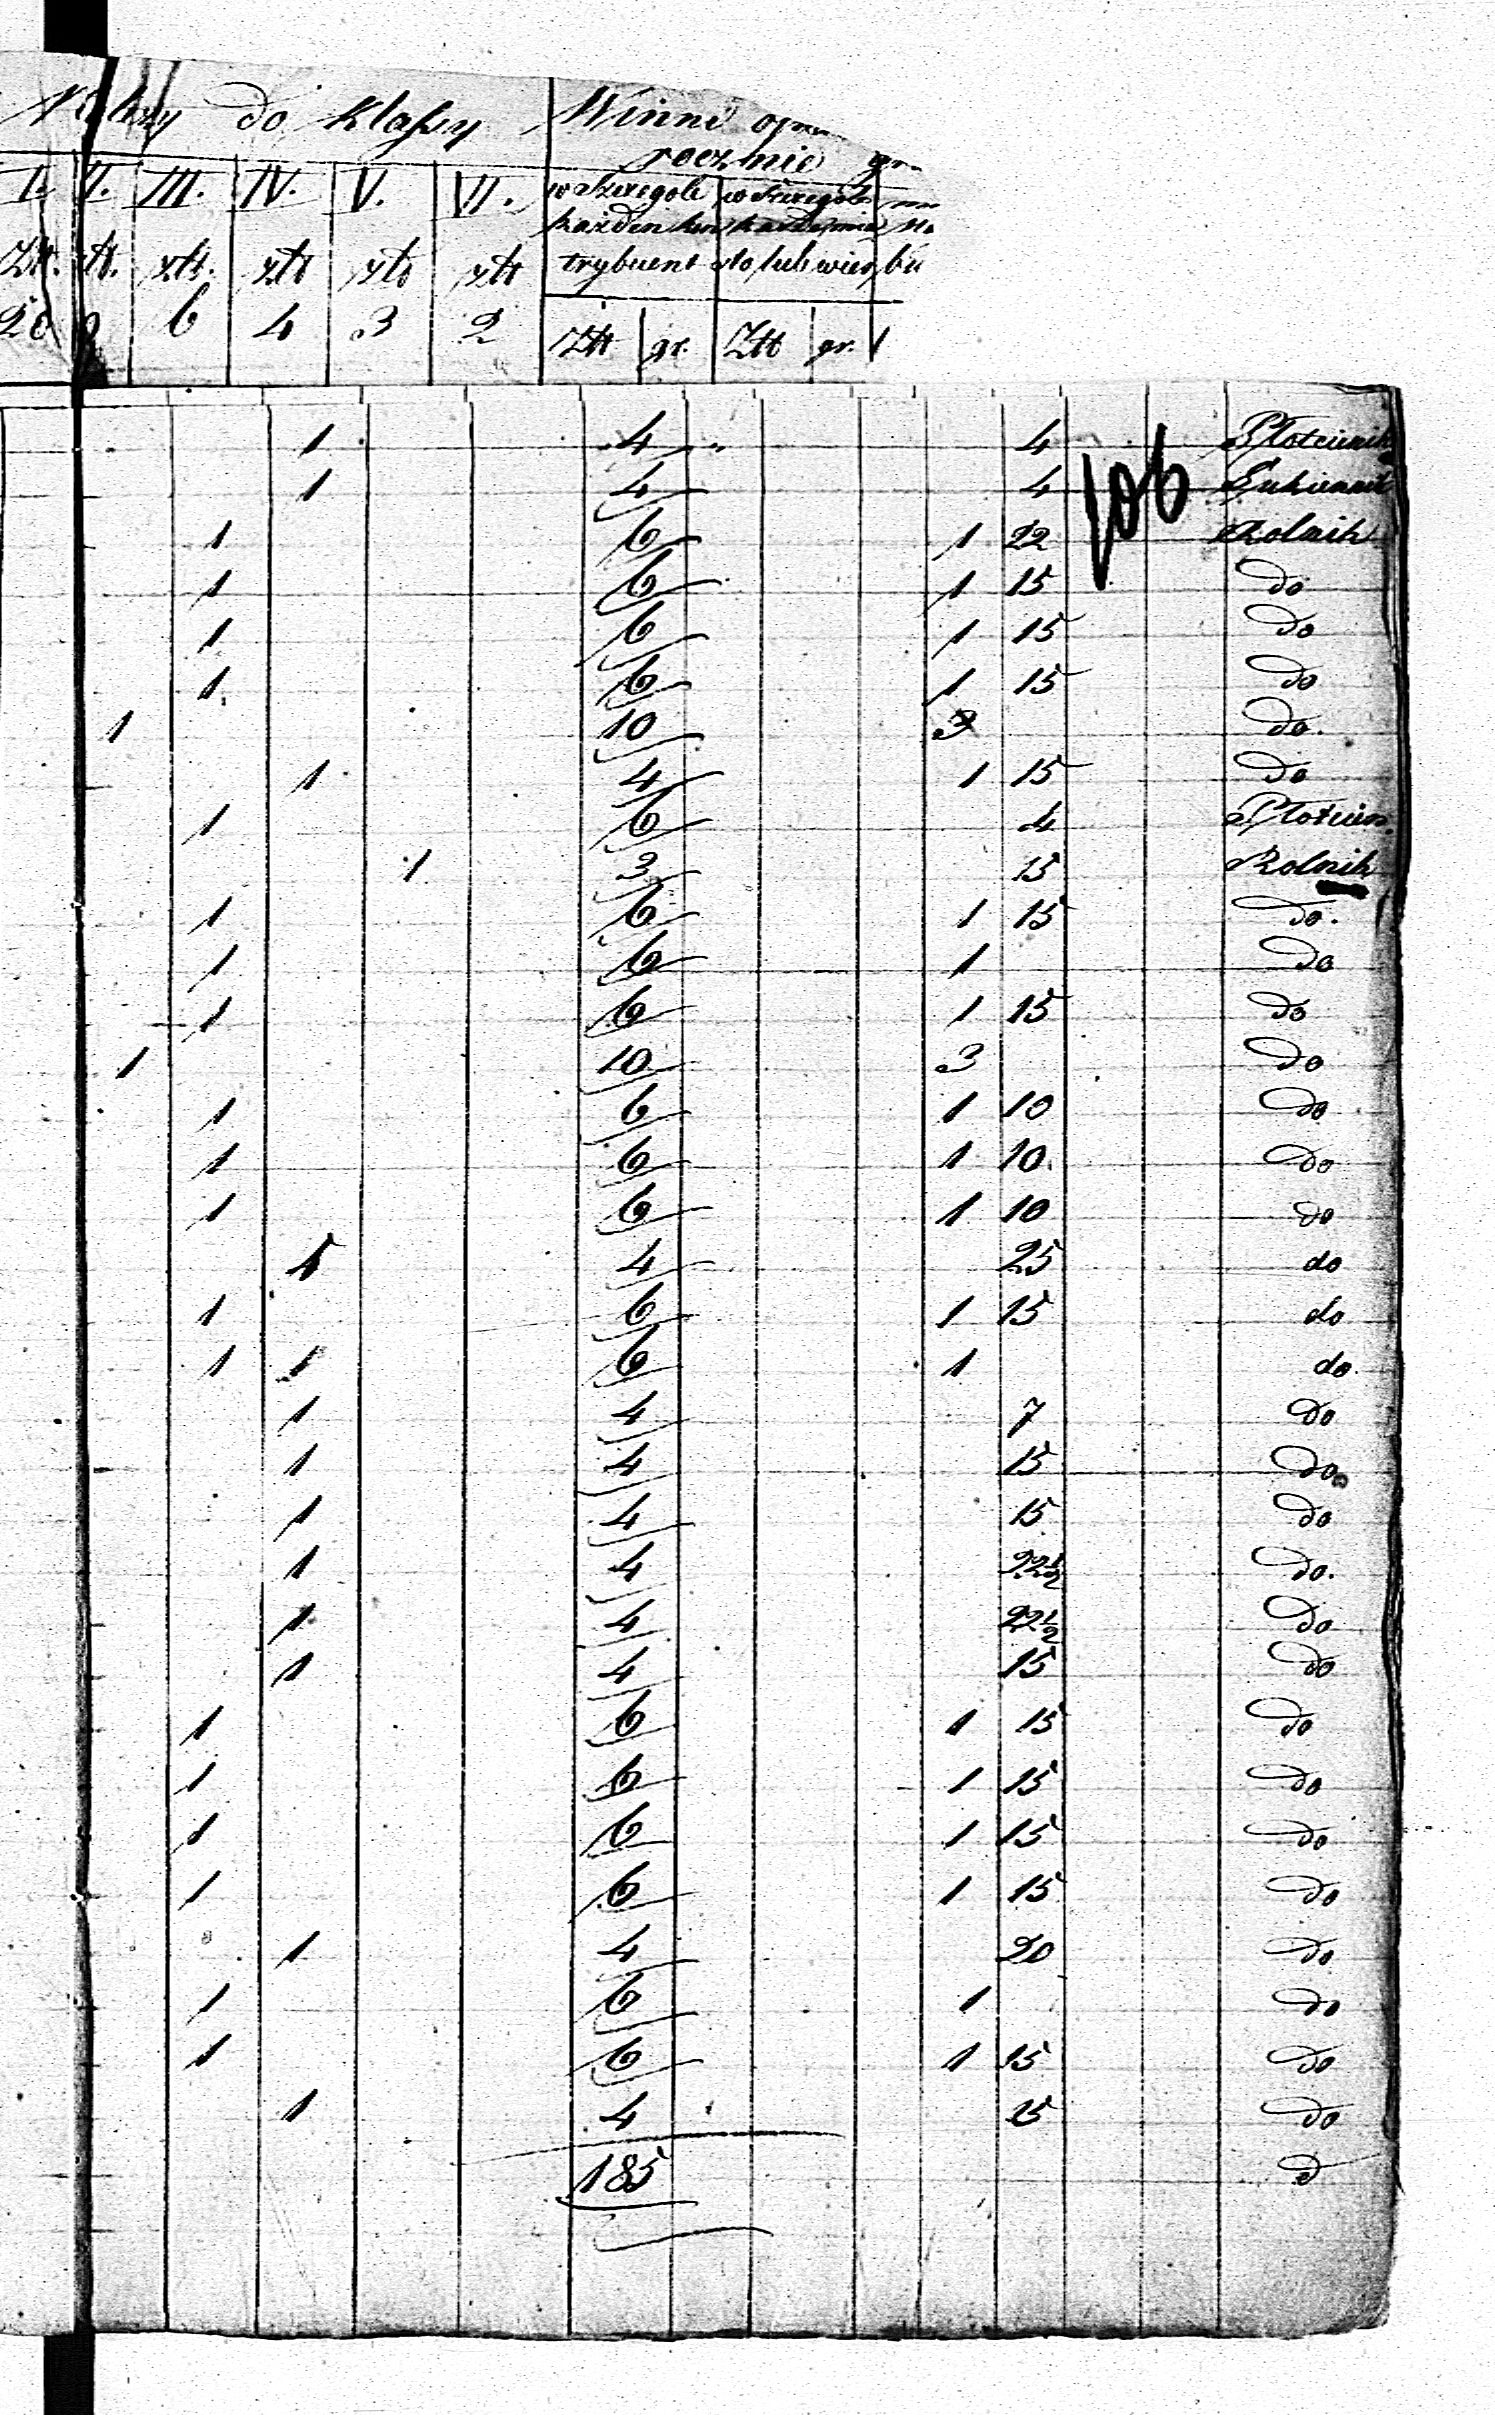 do Klassy Winni
rocznie
I. II. III. IV. V. VI. w szczegole w szczegole
każden kon
trybuent
Złt. złt. złt złt złt
20 6 4 3 2 Złt gr. Złt gr.
106
1 4 " 4 Płóciennik
1 4 4 Sukiennik
1 6 1 22 Rolnik
1 6 1 15 do
1 6 1 15 do
1 6 1 15 do
1 10 3 do.
1 4 1 15 do
1 6 4 Płócien.
1 3 15 Rolnik
1 6 1 15 do.
1 6 1 do
1 6 1 15 do
1 10 3 do
1 6 1 10 do
1 6 1 10 do
1 6 1 10 do
1 4 25 do
1 6 1 15 do
1 1 6 1 do.
1 4 7 do
1 4 15 do
1 4 15 do
1 4 22½ do.
1 4 22½ do
1 4 15 do
1 6 1 15 do
1 6 1 15 do
1 6 1 15 do
1 6 1 15 do
1 4 20 do
1 6 1 do
1 6 1 15 do
1 4 25 do
185 d